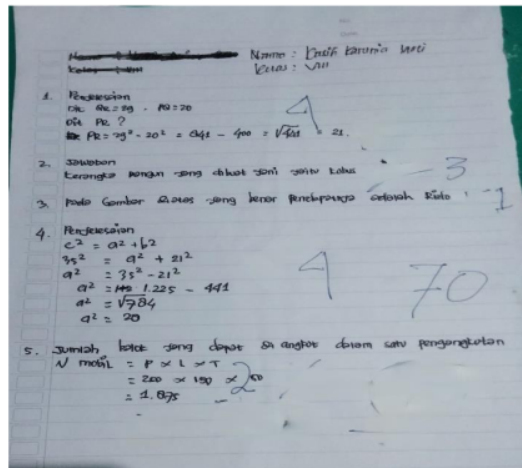 Nama : Kasih Karunia Wati
Kelas : VIII
1. Penyelesaian
Dik QR = 29 . PQ = 20
Dit PR ?
PR = 29² - 20² = 841 - 400 = √441 = 21.
4
2. Jawaban
Kerangka bangun yang dibuat Joni yaitu kubus
3
3. pada Gambar diatas yang benar pendapatnya adalah Rido
1
4. Penyelesaian
c² = a² + b²
35² = a² + 21²
a² = 35² - 21²
a² = 1.225 - 441
a² = √784
a² = 20
4
70
5. Jumlah kotak yang dapat di angkut dalam satu pengangkutan
V mobil = P x L x T
= 200 x 150 x
= 1.875
2